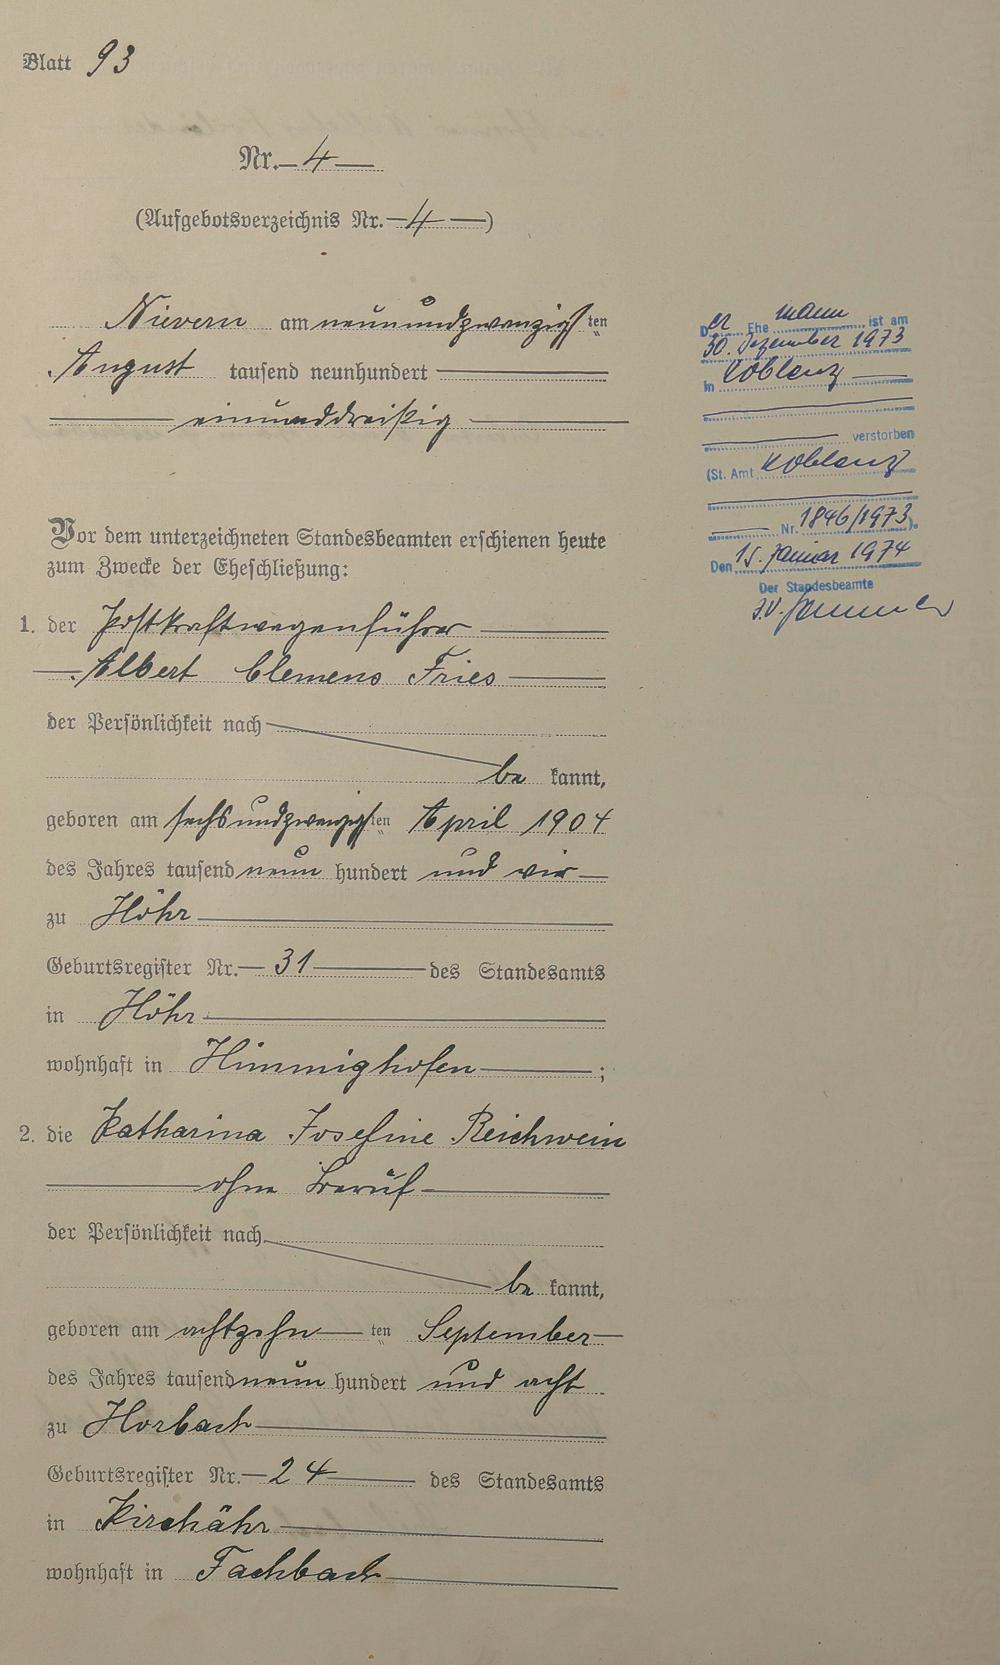 Blatt 93
Nr. 4
(Aufgebotsverzeichnis Nr. 4)
Nievern am neunundzwanzigsten
August tausend neunhundert
einunddreißig
Vor dem unterzeichneten Standesbeamten erschienen heute
zum Zwecke der Eheschließung:
1. der Postkraftwagenführer
Albert Clemens Fries
der Persönlichkeit nach
be kannt,
geboren am sechsundzwanzigsten April 1904
des Jahres tausend neun hundert und vier
zu Höhr
Geburtsregister Nr. 31 des Standesamts
in Höhr
wohnhaft in Himmighofen;
2. die Katharina Josefine Reichwein
ohne Beruf
der Persönlichkeit nach
be kannt,
geboren am achtzehnten September
des Jahres tausend neun hundert und acht
zu Horbach
Geburtsregister Nr. 24 des Standesamts
in Kirchähr
wohnhaft in Fachbach
Der Ehemann ist am
30. Dezember 1973
in Koblenz
verstorben
(St. Amt Koblenz
Nr. 1846/1973).
Den 15. Januar 1974
Der Standesbeamte